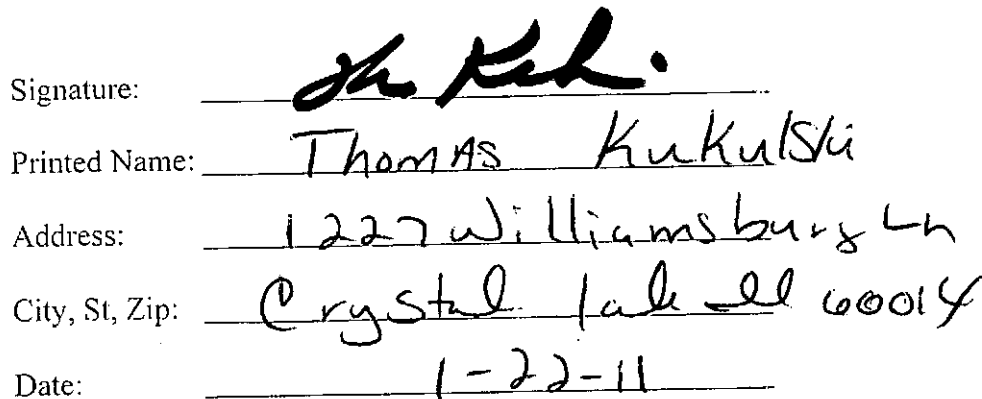 Signature:
Printed Name: Thomas Kukulski
Address: 1227 Williamsburg Ln
City, St, Zip: Crystal lake Ill 60014
Date: 1-22-11